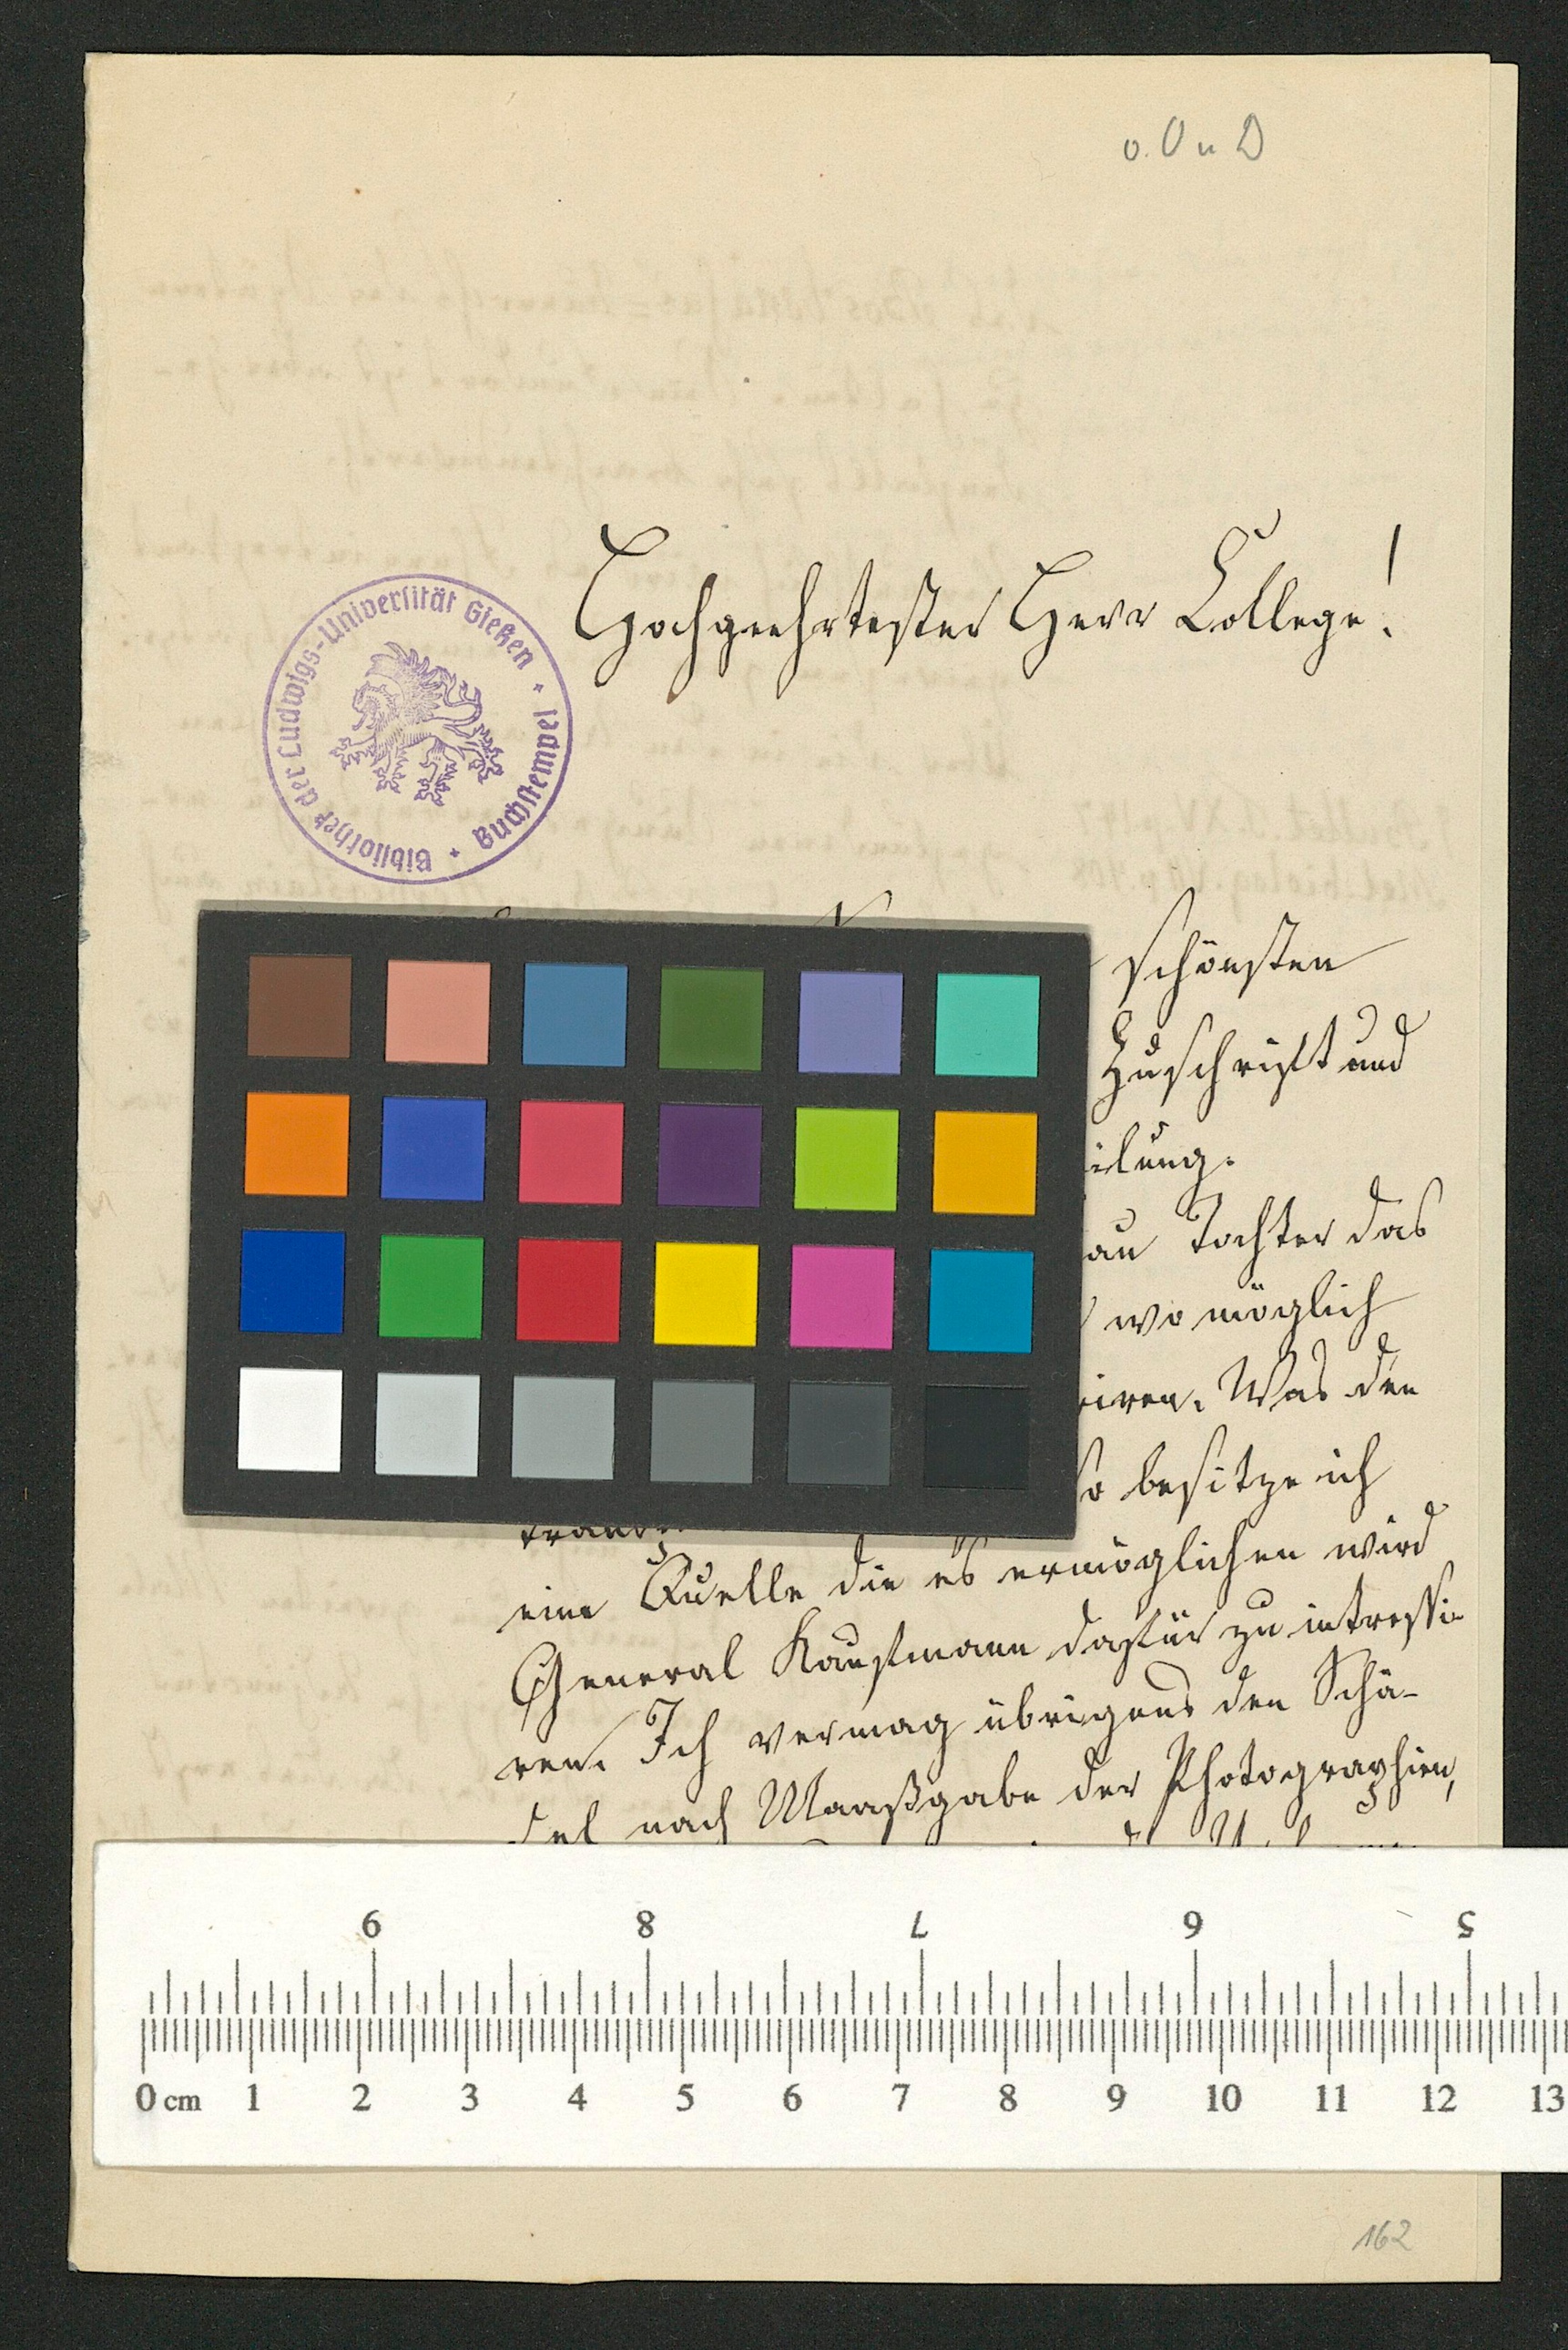 o. O u D
Hochgeehrtester Herr College!
Bibliothek der Ludwigs-Universität Gießen
Buchstempel
schönsten
Zuschrift und
ilung.
au Tochter das
wo möglich
iren. Was den
so besitze ich
eine Quelle die es ermöglichen wird
General Kaufmann dafür zu intressi-
ren. Ich vermag übrigens den Schä-
del nach Maaßgabe der Photographien,
9 8 7 6 5
0 cm 1 2 3 4 5 6 7 8 9 10 11 12 13
162